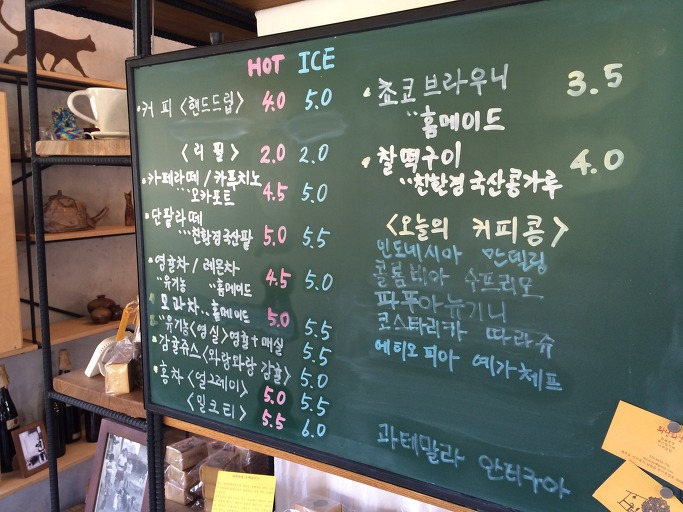 HOT ICE
•커피 <핸드드립> 4.0 5.0
<리필> 2.0 2.0
•카페라떼/카푸치노 4.5 5.0
모카포트
•단팥라떼 5.0 5.5
친환경국산팥
•영귤차/레몬차 4.5 5.0
유기농 홈메이드
•모과차 홈메이드 5.0
유기농<영실>영귤+매실 5.5
•감귤쥬스<와랑와랑 감귤> 5.5
•홍차<얼그레이> 5.0 5.0
<밀크티> 5.0 5.5
5.5 6.0
•쵸코브라우니 3.5
홈메이드
•찰떡구이 4.0
친환경국산콩가루
<오늘의 커피콩>
인도네시아 만델링
콜롬비아 수프리모
파푸아뉴기니
코스타리카 따라슈
에티오피아 예가체프
과테말라 안티구아